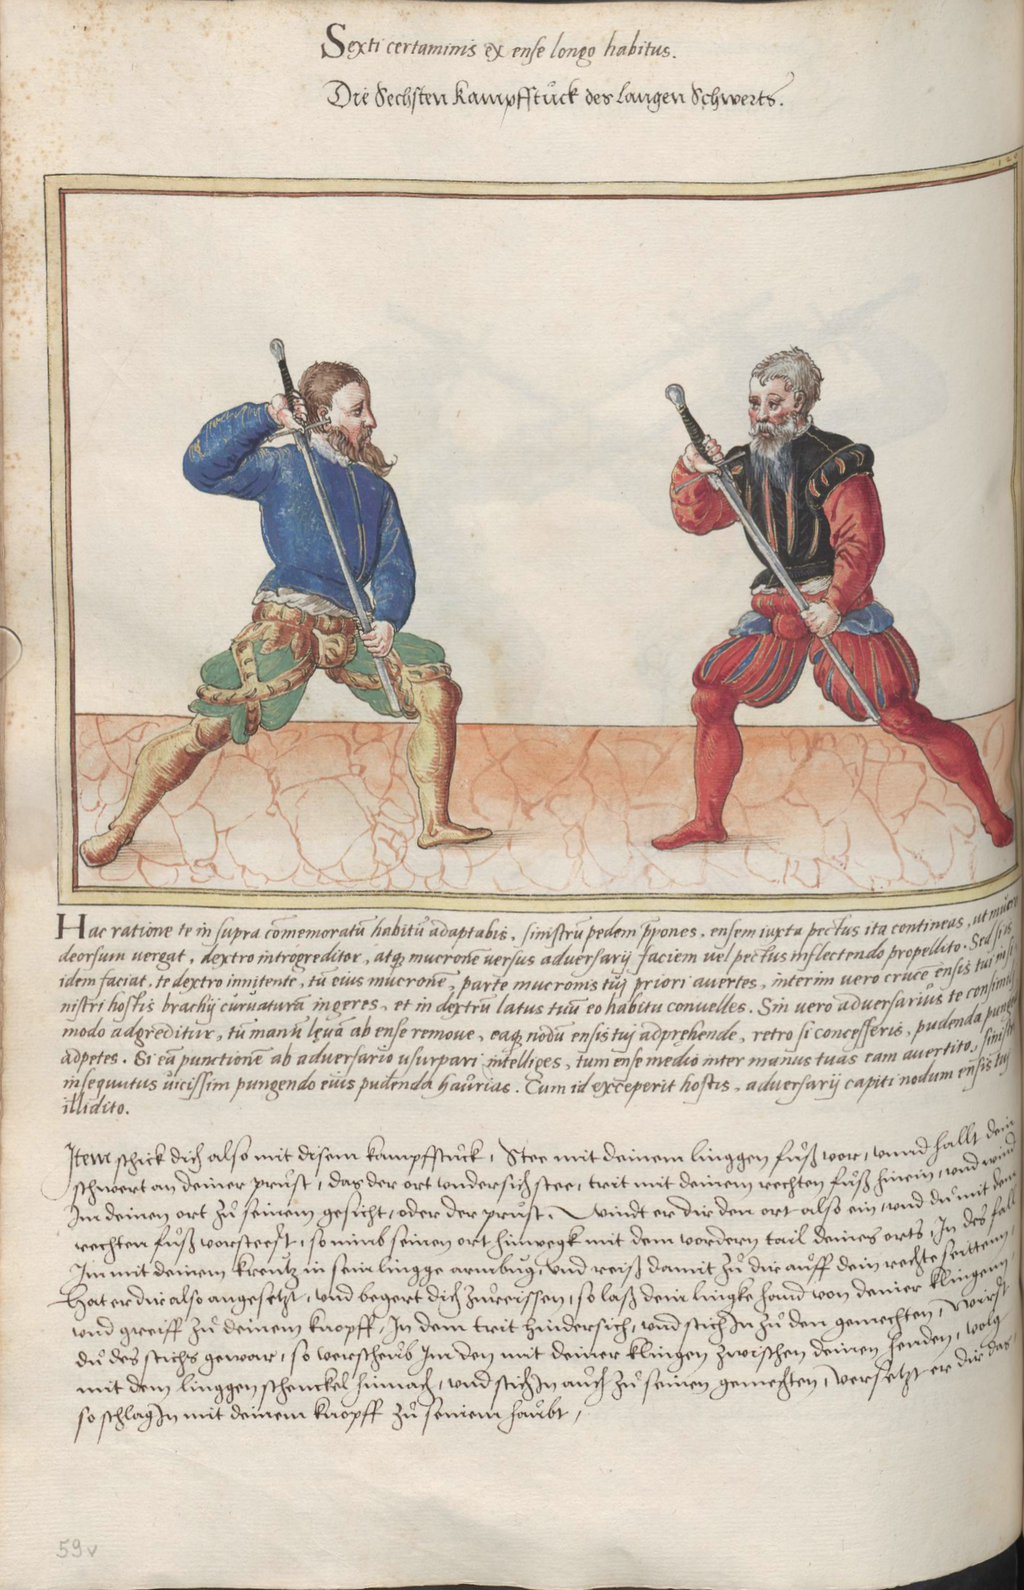 Sexti certaminis ex ense longo habitus.
Die Sechsten Kampfstuck des langen Schwerts.
Hac ratione te in supra cōmemoratū habitū adaptabis. sinistrū pedem p̄pones, ensem iuxta pectus ita contineas, ut mucro
deorsum vergat, dextro introgreditor, atq₃ mucronē versus adversarij faciem vel pectus inflectendo propellito. Sed si is
idem faciat, te dextro innitente, tū eius mucronē, parte mucronis tui priori avertes, interim vero crucē ensis tui in si
nistri hostis brachij curvaturā ingeres, et in dextrū latus tuū eo habitu convelles. Sin vero adversarius te consimili
modo adgreditur, tū manū lęvā ab ense remove, eaq₃ nodū ensis tui adprehende, retro si concesseris, pudenda pungendo
adpetes. Si eā punctionē ab adversario usurpari intelliges, tum ense medio inter manus tuas eam avertito, sinistro
insequutus vicissim pungendo eius pudenda haurias. Cum id exceperit hostis, adversarij capiti nodum ensis tui
illidito.
Item schick dich also mit disem kampfstuck, Stee mit deinem linggen fuß vor, unnd hallt dein
schwert an deiner prust, das der ort undersich stee, trit mit deinem rechten fuß hinein, und wind
Im deinen ort zu seinem gesicht, oder der prust. Windt er dir den ort also ein, und du mit dem
rechten fuß vorsteest, so nimb seinen ort hinwegk mit dem vordern tail deines orts, In des fall
Im mit deinem kreutz in sein lingge armbug, und reiß damit zu dir auff dein rechte seitten,
Hat er dir also angesetzt, und begert dich zureissen, so laß dein lingke hand von deiner klingen,
und greiff zu deinem knopff, In dem trit hindersich, und stich In zu den gemechten, Wirst
du des stichs gewar, so verscheub Im den mit deiner klingen zwischen deinen henden, volg
mit dem linggen schenckel hinnach, und stich In auch zu seinen gemechten, Versetzt er dir das
so schlag In mit deinem knopff zu seinem haubt,
59v